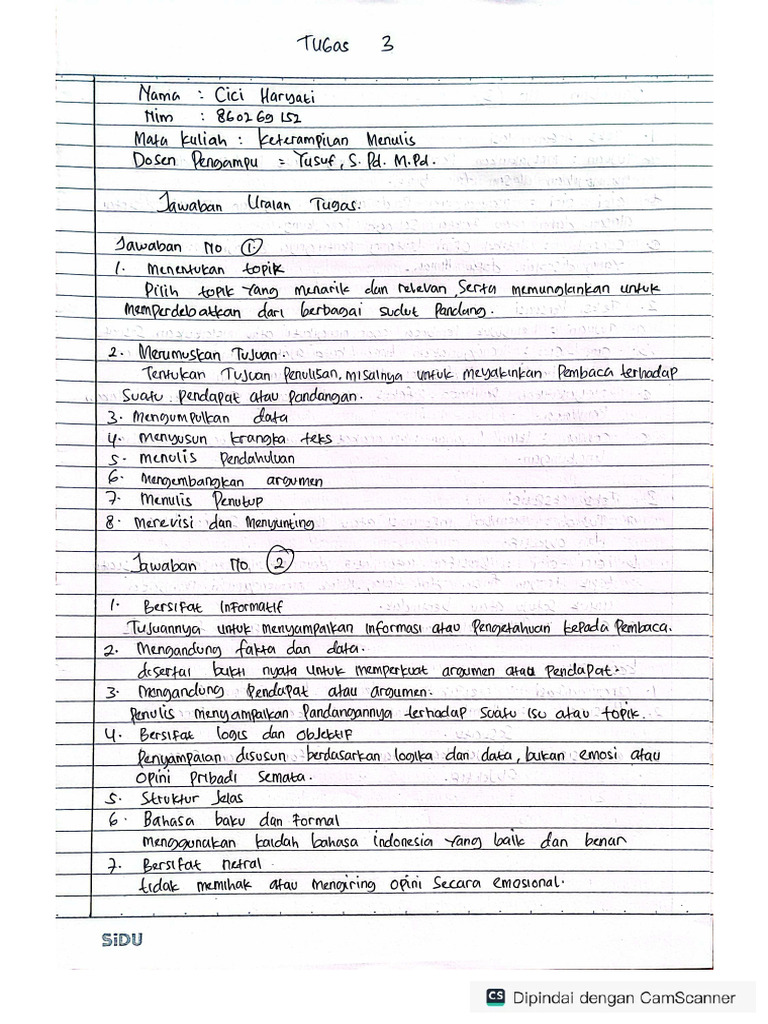 TUGas 3
Nama : Cici Haryati
Nim : 860269152
Mata kuliah : keterampilan Menulis
Dosen Pengampu = Yusuf, S. Pd. M.Pd.
Jawaban Uraian Tugas.
Jawaban No 1.
1. Menentukan topik
Pilih topik yang menarik dan relevan, Serta memungkinkan untuk
memperdebatkan dari berbagai sudut Pandang.
2. Merumuskan Tujuan.
Tentukan Tujuan Penulisan, misalnya untuk meyakinkan Pembaca terhadap
Suatu Pendapat atau Pandangan.
3. Mengumpulkan data
4. Menyusun krangka teks
5. menulis Pendahuluan
6. Mengembangkan argumen
7. Menulis Penutup
8. Merevisi dan Menyunting
Jawaban No. 2
1. Bersifat Informatif
Tujuannya untuk menyampaikan Informasi atau Pengetahuan kepada Pembaca.
2. Mengandung fakta dan data.
disertai bukti nyata untuk memperkuat argumen atau Pendapat.
3. Mengandung Pendapat atau argumen.
Penulis menyampaikan Pandangannya terhadap suatu isu atau topik.
4. Bersifat logis dan objektif
Penyampaian disusun berdasarkan logika dan data, bukan emosi atau
opini Pribadi Semata.
5. Struktur Jelas
6. Bahasa baku dan Formal
Menggunakan kaidah bahasa indonesia yang baik dan benar
7. Bersifat netral.
tidak memihak atau mengiring opini Secara emosional.
SiDU
CS Dipindai dengan CamScanner